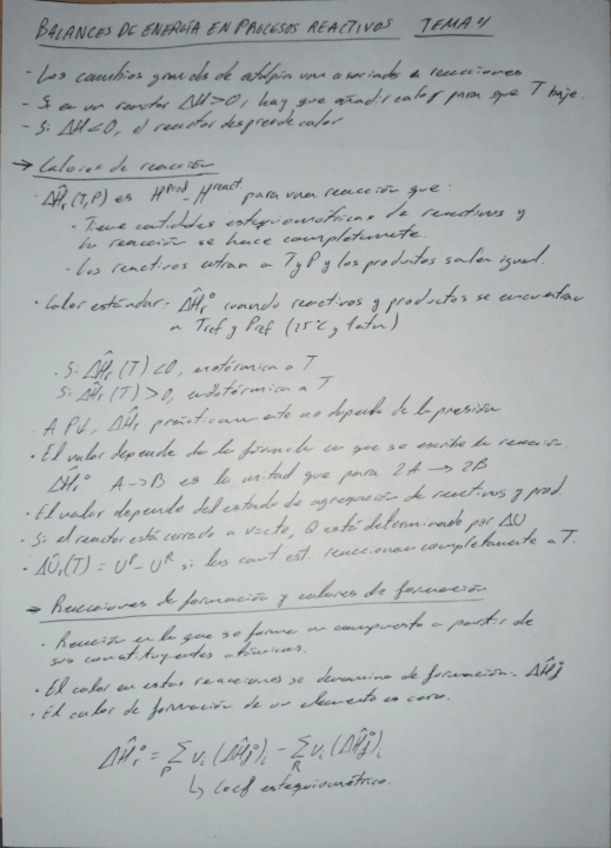 BALANCES DE ENERGÍA EN PROCESOS REACTIVOS TEMA 4
- Los cambios grandes de entalpía van asociados a reacciones
- Si en un reactor ΔH>0, hay que añadir calor para que T baje.
- Si ΔH<0, el reactor desprende calor
→ Calores de reacción
· ΔĤr(T,P) es Hprod - Hreact. para una reacción que:
· Tiene cantidades estequiométricas de reactivos y
la reacción se hace completamente.
· Los reactivos entran a T y P y los productos salen igual.
· Calor estándar: ΔĤr° cuando reactivos y productos se encuentran
a Tref y Pref (25°C y 1atm)
· Si ΔĤr(T)<0, exotérmica a T
Si ΔĤr(T)>0, endotérmica a T
A P↓, ΔĤr prácticamente no depende de la presión.
· El valor depende de la fórmula en que se escribe la reacción.
ΔĤr° A→B es la mitad que para 2A→2B
· El valor depende del estado de agregación de reactivos y prod.
· Si el reactor está cerrado a V=cte, Q está determinado por ΔU
· ΔÛr(T) = UP - UR si las cant est. reaccionan completamente a T.
→ Reacciones de formación y calores de formación
· Reacción en la que se forma un compuesto a partir de
sus constituyentes atómicos.
· El calor en estas reacciones se denomina de formación. ΔĤf
· El calor de formación de un elemento es cero.
ΔĤr° = Σ_P νi (ΔĤf°)i - Σ_R νi (ΔĤf°)i
↳ Coef estequiométrico.